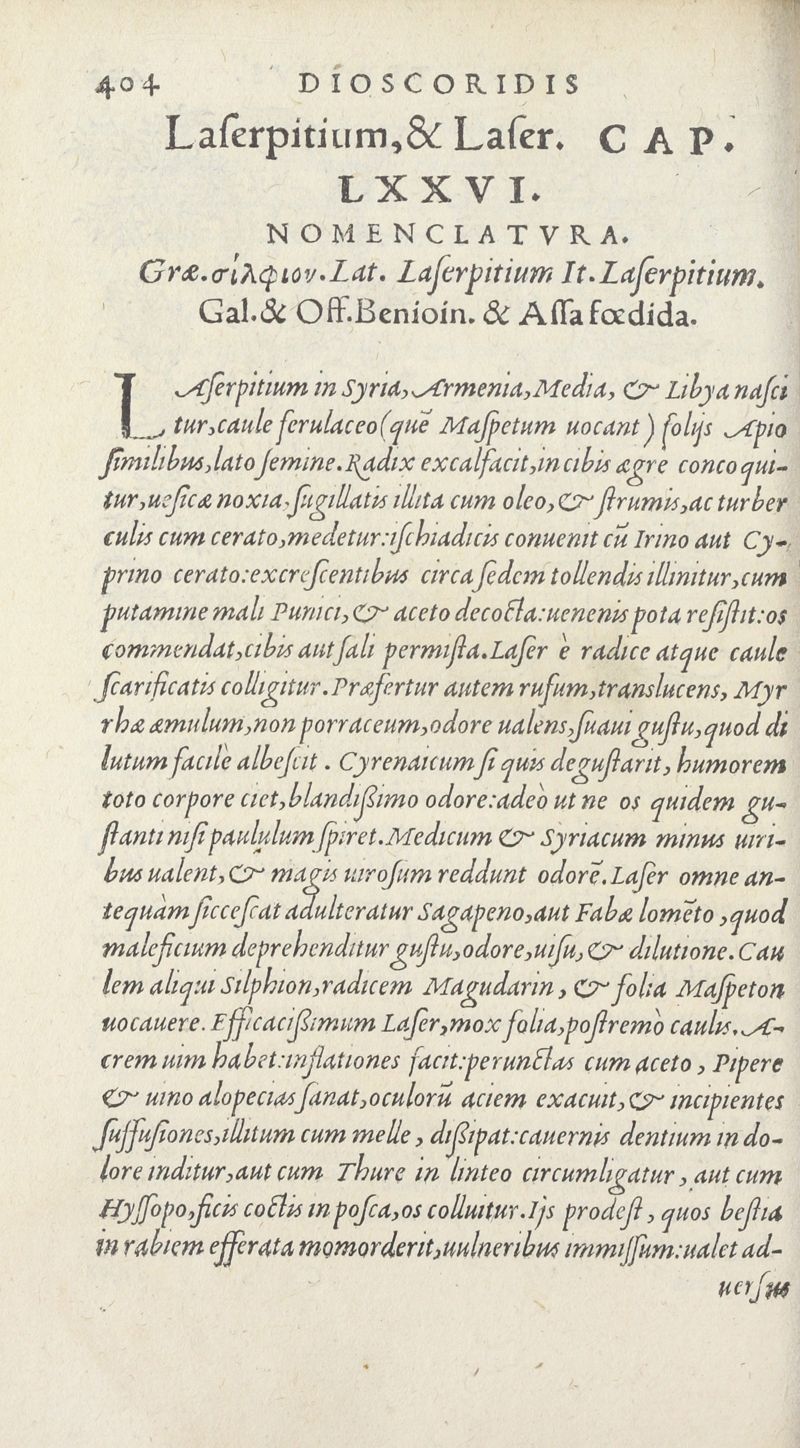 404 DIOSCORIDIS
Laſerpitium, & Laſer. CAP.
LXXVI.
NOMENCLATVRA.
Græ. σίλφιον. Lat. Laſerpitium It. Laſerpitium.
Gal. & Off. Benioin. & Aſſa fœdida.
LAſerpitium in Syria, Armenia, Media, & Libya naſci
tur, caule ferulaceo (quẽ Maſpetum uocant) folijs Apio
ſimilibus, lato ſemine. Radix excalfacit, in cibis ægre conco qui-
tur, ueſicæ noxia. ſugillatis illita cum oleo, & ſtrumis, ac tuber
culis cum cerato, medetur: iſchiadicis conuenit cũ Irino aut Cy-
prino cerato: excreſcentibus circa ſedem tollendis illinitur, cum
putamine mali Punici, & aceto decocta: uenenis pota reſiſtit: os
commendat, cibis aut ſali permiſta. Laſer è radice atque caule
ſcarificatis colligitur. Præfertur autem rufum, translucens, Myr
rhæ æmulum, non porraceum, odore ualens, ſuaui guſtu, quod di
lutum facile albeſcit. Cyrenaicum ſi quis deguſtarit, humorem
toto corpore ciet, blandiſsimo odore: adeò ut ne os quidem gu-
ſtanti niſi paululum ſpiret. Medicum & Syriacum minus uiri-
bus ualent, & magis uiroſum reddunt odorẽ. Laſer omne an-
tequàm ſicceſcat adulteratur Sagapeno, aut Fabæ lomẽto, quod
maleficium deprehenditur guſtu, odore, uiſu, & dilutione. Cau
lem aliqui Silphion, radicem Magudarin, & folia Maſpeton
uocauere. Efficaciſsimum Laſer, mox folia, poſtremò caulis. A-
crem uim habet: inflationes facit: perunctas cum aceto, Pipere
& uino alopecias ſanat, oculorũ aciem exacuit, & incipientes
ſuffuſiones, illitum cum melle, diſsipat: cauernis dentium in do-
lore inditur, aut cum Thure in linteo circumligatur, aut cum
Hyſſopo, ficis coctis in poſca, os colluitur. Ijs prodeſt, quos beſtia
in rabiem efferata momorderit, uulneribus immiſſum: ualet ad-
uerſus